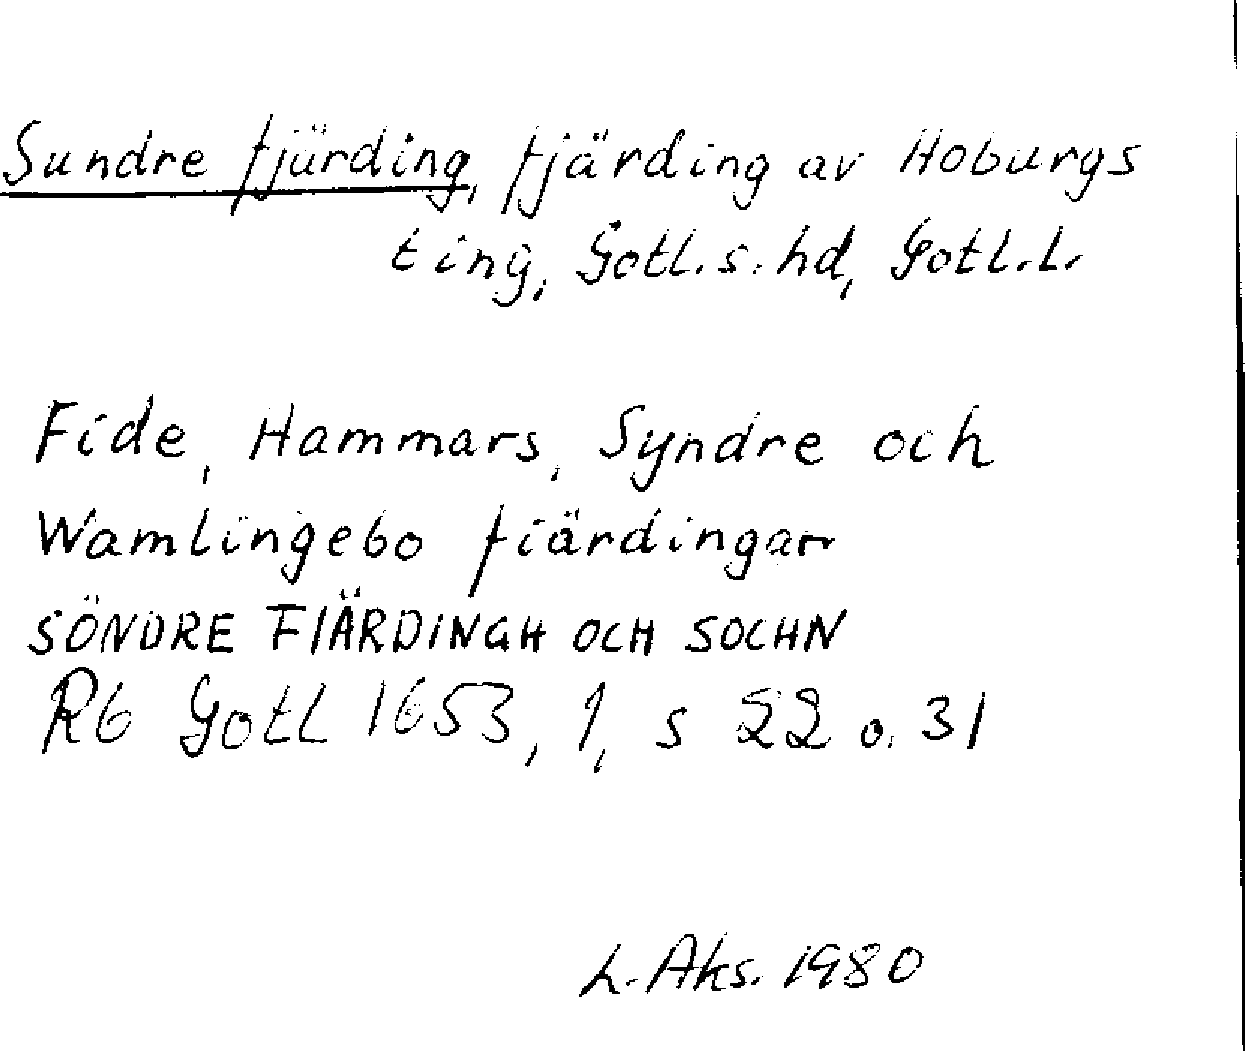 Sundre fjärding, fjärding av Hoburgs
ting, Gotl. s. hd, Gotl. L.
Fide, Hammars, Syndre och
Wamlingebo fiärdingar
SÖNDRE FIÄRDINGH OCH SOCHN
Rb Gotl 1653, 1, s 22 o. 31
L. Aks. 1980